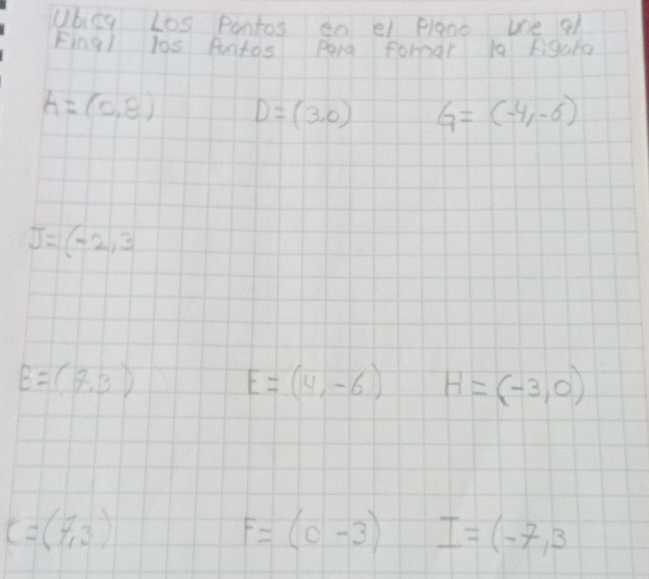 Ubica Los Puntos en el Plano une al
Final los Puntos Para formar la figura
A=(0,8) D=(3,0) G=(-4,-6)
J=(-2,3
B=(7,3) E=(4,-6) H=(-3,0)
C=(7,3) F=(0 -3) I=(-7,3